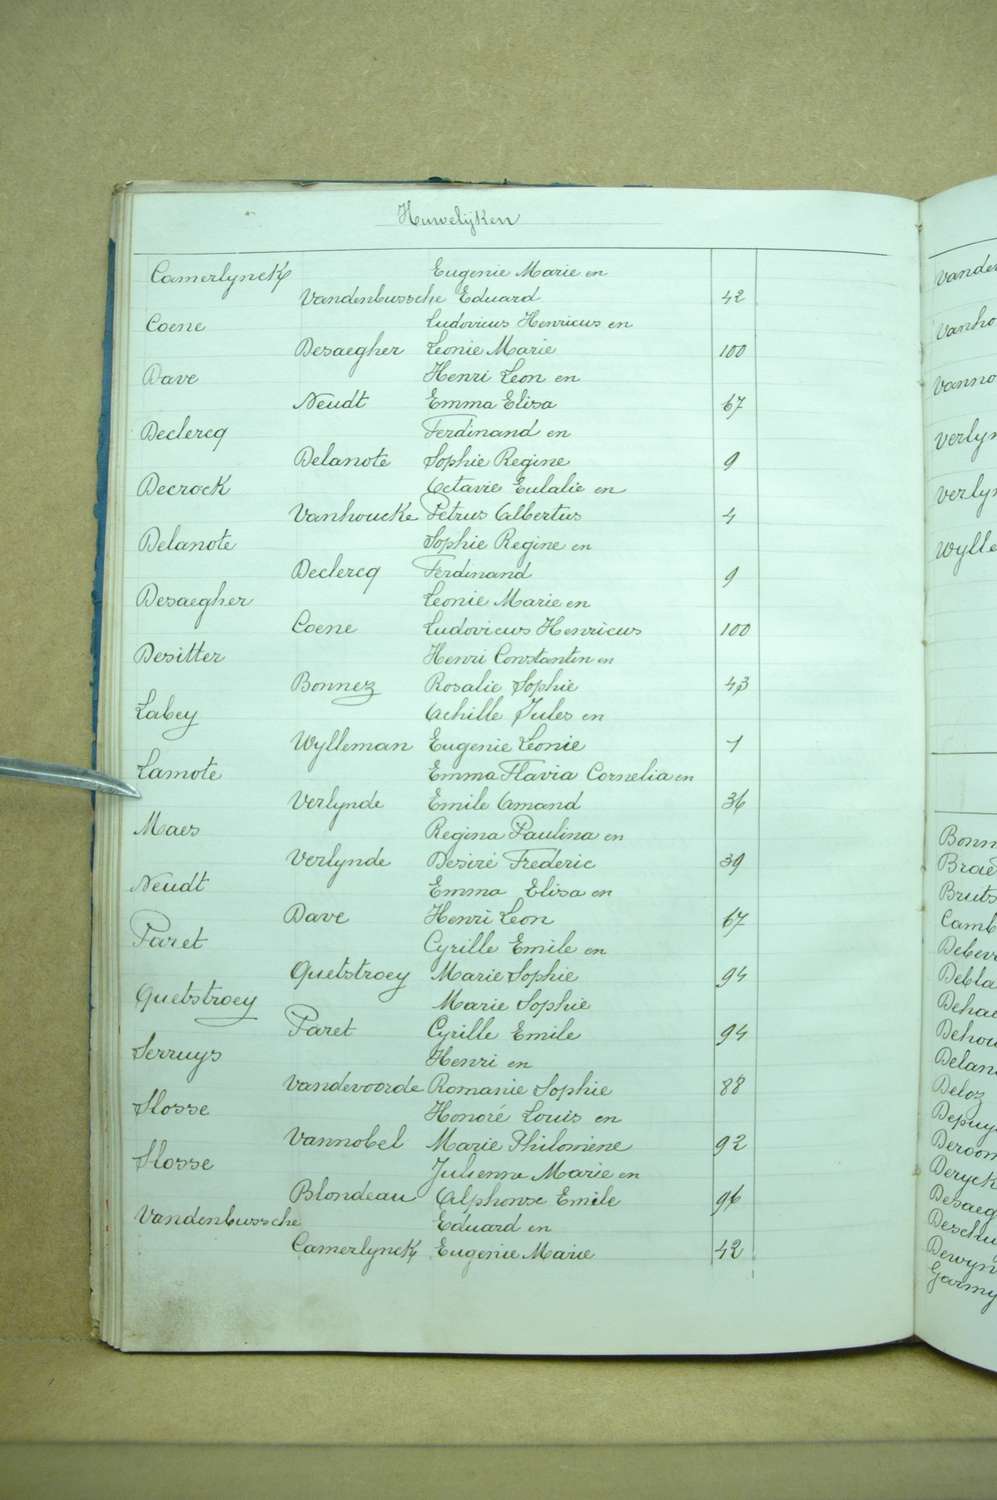 Huwelijken
Camerlynck Eugenie Marie en
Vandenbussche Eduard 42
Coene Ludovicus Henricus en
Desaegher Leonie Marie 100
Dave Henri Leon en
Neudt Emma Elisa 67
Declercq Ferdinand en
Delanote Sophie Regine 9
Decrock Octavie Eulalie en
Vanhoucke Petrus Albertus 4
Delanote Sophie Regine en
Declercq Ferdinand 9
Desaegher Leonie Marie en
Coene Ludovicus Henricus 100
Desitter Henri Constantin en
Bonnez Rosalie Sophie 43
Labey Achille Jules en
Wylleman Eugenie Leonie 1
Lamote Emma Flavia Cornelia en
Verlynde Emile Amand 36
Maes Regina Paulina en
Verlynde Desiré Frederic 39
Neudt Emma Elisa en
Dave Henri Leon 67
Paret Cyrille Emile en
Quetstroey Marie Sophie 94
Quetstroey Marie Sophie
Paret Cyrille Emile 94
Serruys Henri en
Vandevoorde Romanie Sophie 88
Slosse Honoré Louis en
Vannobel Marie Philomene 92
Slosse Julienne Marie en
Blondeau Alphonse Emile 96
Vandenbussche Eduard en
Camerlynck Eugenie Marie 42
Vanden
Vanho
Vanno
Verlyn
Verlyn
Wylle
Bonn
Brae
Bruts
Camb
Debev
Debla
Dehae
Dehou
Delan
Deloz
Depuy
Deroo
Deryck
Desaeg
Deschu
Dewyn
Garmy